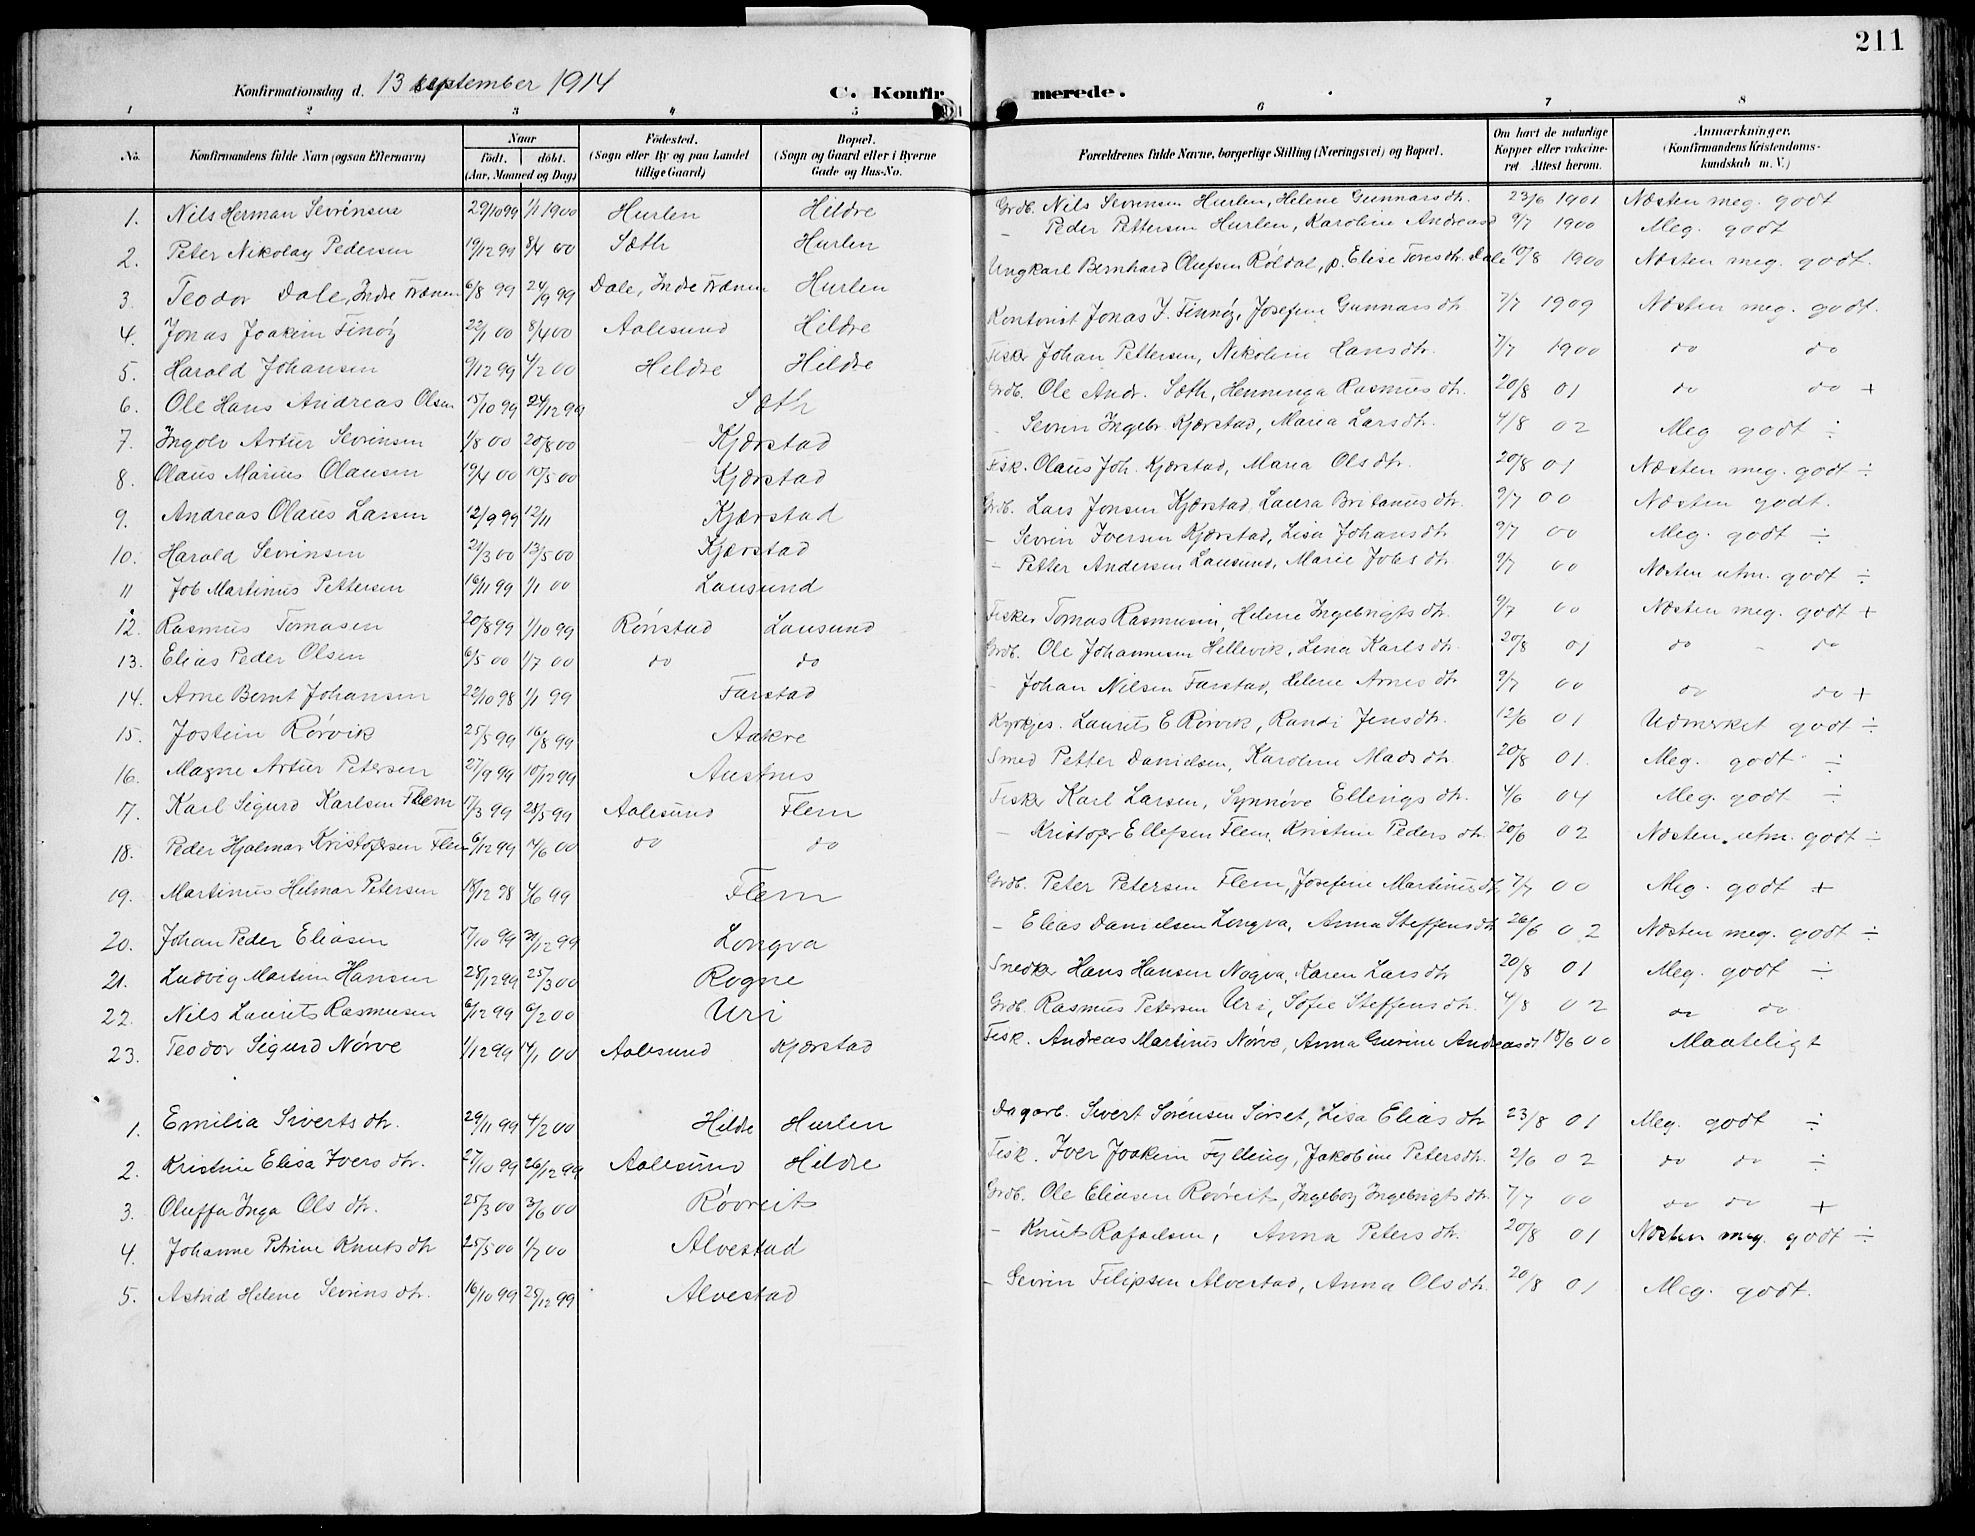 211
Konfirmationsdag d. 13 september 1914 C. Konfirmerede.
1 2 3 4 5 6 7 8
No. Konfirmandens fulde Navn (ogsaa Efternavn) Naar født. døbt. (Aar, Maaned og Dag) Fødested. (Sogn eller By og paa Landet tillige Gaard) Bopæl. (Sogn og Gaard eller i Byerne Gade og Hus-No. Forældrenes fulde Navne, borgerlige Stilling (Næringsvei) og Bopæl. Om havt de naturlige Kopper eller vakcineret Attest herom. Anmærkninger. (Konfirmandens Kristendomskundskab m. V.)
1. Nils Herman Sevrinsen 29/10 99 1/1 1900 Hurlen Hildre Grdb. Nils Sevrinsen Hurlen, Helene Gunnarsdtr. 23/6 1901 Næsten meg. godt
2. Peter Nikolay Pedersen 19/12 99 8/4 00 Sæth Hurlen - Peder Pettersen Hurlen, Karoline Andreasd 9/7 1900 Meg. godt
3. Teodor Dale, Indre Frænen 6/8 99 24/9 99 Dale, Indre Frænen Hurlen Ungkarl Bernhard Olufsen Røldal, p. Elise Toresdtr. Dale 10/8 1900 Næsten meg. godt.
4. Jonas Joakim Finøy 22/1 00 8/4 00 Aalesund Hildre Kontorist Jonas J. Finnøy, Josefine Gunnarsdtr 7/7 1909 Næsten meg. godt.
5. Harald Johansen 9/12 99 4/2 00 Hildre Hildre Fisker Johan Pettersen, Nikoline Hansdtr. 7/7 1900 do do
6. Ole Hans Andreas Olsen 15/10 99 24/12 99 Sæth Grdb. Ole Andr. Sæth, Henninga Rasmusdtr. 20/8 01 do do +
7. Ingolv Artur Sevrinsen 1/8 00 20/8 00 Kjærstad - Sevrin Ingebr. Kjærstad, Maria Larsdtr. 4/8 02 Meg godt ÷
8. Olaus Marius Olausen 19/4 00 10/5 00 Kjærstad Fisk. Olaus Joh. Kjærstad, Maria Olsdtr. 20/8 01 Næsten meg. godt ÷
9. Andreas Olaus Larsen 12/9 99 12/11 Kjærstad Grdb. Lars Jonsen Kjærstad, Laura Britanusdtr. 9/7 00 Næsten godt.
10. Harald Sevrinsen 21/3 00 13/5 00 Kjærstad - Sevrin Iversen Kjærstad, Lisa Johansdtr. 9/7 00 Meg. godt ÷
11 Job Martinus Pettersen 16/11 99 1/1 00 Lausund - Petter Andersen Lausund, Marie Jobsdtr 9/7 00 Næsten utm. godt ÷
12. Rasmus Tomasen 20/8 99 1/10 99 Rønstad Lausund Fisker Tomas Rasmusen, Helene Ingebrigtsdtr. 9/7 00 Næsten meg. godt +
13. Elias Peder Olsen 6/5 00 1/7 00 do do Grdb. Ole Johannesen Hellevik, Lina Karlsdtr. 20/8 01 do - do
14. Arne Bernt Johansen 22/10 98 1/1 99 Farstad - Johan Nilsen Farstad, Helene Arnesdtr 9/7 00 do do +
15. Jostein Rørvik 25/5 99 16/8 99 Aakre Kyrkjes. Laurits E Rørvik, Randi Jensdtr. 12/6 01 Udmerket godt ÷
16. Magne Artur Petersen 27/9 99 10/12 99 Austnes Smed Petter Danielsen, Karoline Madsdtr. 20/8 01. Meg. godt ÷
17. Karl Sigurd Karlsen Flem 17/3 99 28/5 99 Aalesund Flem Fisker Karl Larsen, Synnøve Ellingsdtr. 4/6 04 Meg. godt ÷
18. Peder Hjalmar Kristofersen Flem 6/12 99 4/6 00 do do - Kristofer Ellefsen Flem, Kristine Pedersdtr. 20/6 02 Næsten utm. godt ÷
19. Martinus Hilmar Petersen 18/12 98 4/6 99 Flem Grdb. Peter Petersen Flem, Josefine Martinusdtr 7/7 00 Meg. godt +
20. Johan Peder Eliasen 17/10 99 31/12 99 Longva - Elias Danielsen Longva, Anna Steffensdtr 26/6 02 Næsten meg. godt ÷
21. Ludvig Martin Hansen 28/12 99 25/3 00 Rogne Snedker Hans Hansen Nogva, Karen Larsdtr 20/8 01 Meg. godt ÷
22. Nils Laurits Rasmusen 6/12 99 6/2 00 Uri Grdb. Rasmus Petersen Uri, Sofie Steffensdtr. 4/8 02 do do.
23. Teodor Sigurd Nørve 1/12 99 14/1 00 Aalesund Kjærstad Fisk. Andreas Martinus Nørve, Anna Gurine Andreasdt 18/6 00 Maateligt
1. Emilia Sivertsdtr. 29/11 99 4/2 00 Hildre Hurlen Dagarb. Sivert Sørensen Sørset, Lisa Eliasdtr 23/8 01 Meg. godt ÷
2. Kristine Elisa Iversdtr. 27/10 99 26/12 99 Aalesund Hildre Fisk. Iver Joakim Fylling, Jakobine Petersdtr. 2/6 02 do do ÷
3. Oluffa Inga Olsdtr. 25/3 00 3/6 00 Røvreit Grdb. Ole Eliasen Røvreit, Ingeborg Ingebrigtsdtr. 7/7 00 do do +
4. Johanne Petrine Knutsdtr 25/5 00 1/7 00 Alvestad - Knut Rafaelsen, Anna Petersdtr. 20/8 01 Næsten meg. godt ÷
5. Astrid Helene Sevrinsdtr. 16/10 99 25/12 99 Alvestad - Sevrin Filipsen Alvestad, Anna Olsdtr. 20/8 01 Meg. godt.